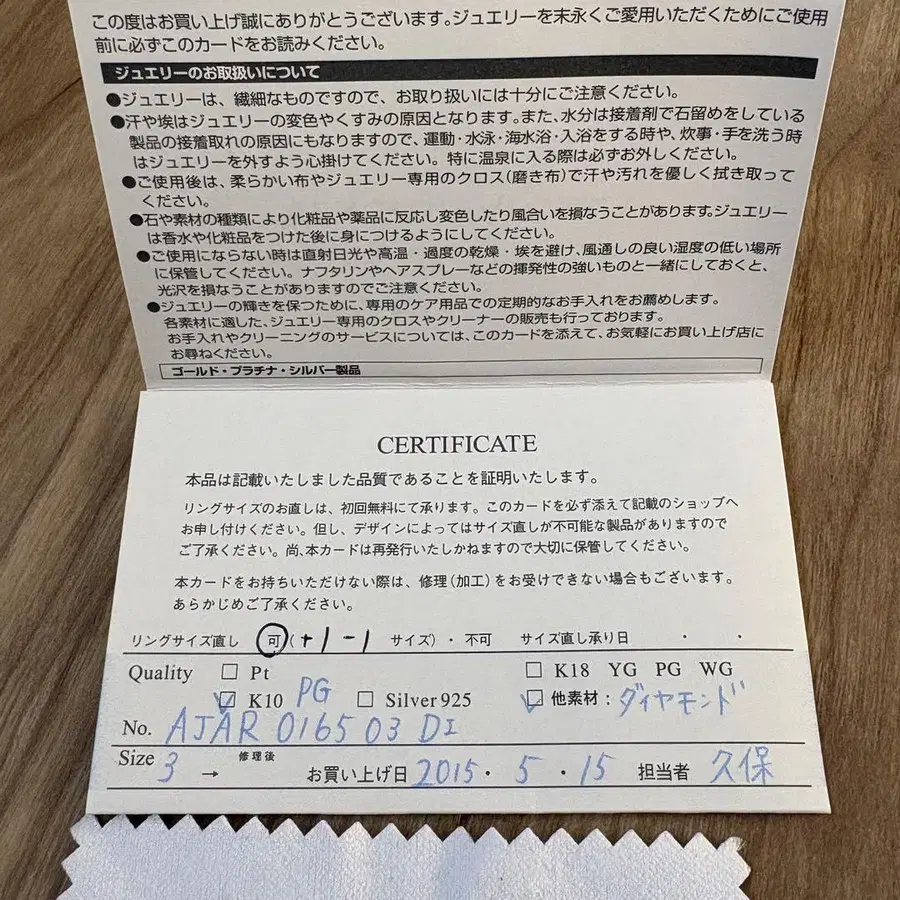 この度はお買い上げ誠にありがとうございます。ジュエリーを末永くご愛用いただくためにご使用
前に必ずこのカードをお読みください。
ジュエリーのお取扱いについて
●ジュエリーは、繊細なものですので、お取り扱いには十分にご注意ください。
●汗や埃はジュエリーの変色やくすみの原因となります。また、水分は接着剤で石留めをしている
製品の接着取れの原因にもなりますので、運動・水泳・海水浴・入浴をする時や、炊事・手を洗う時
はジュエリーを外すよう心掛けてください。特に温泉に入る際は必ずお外しください。
●ご使用後は、柔らかい布やジュエリー専用のクロス(磨き布)で汗や汚れを優しく拭き取って
ください。
●石や素材の種類により化粧品や薬品に反応し変色したり風合いを損なうことがあります。ジュエリー
は香水や化粧品をつけた後に身につけるようにしてください。
●ご使用にならない時は直射日光や高温・過度の乾燥・埃を避け、風通しの良い湿度の低い場所
に保管してください。ナフタリンやヘアスプレーなどの揮発性の強いものと一緒にしておくと、
光沢を損なうことがありますのでご注意ください。
●ジュエリーの輝きを保つために、専用のケア用品での定期的なお手入れをお薦めします。
各素材に適した、ジュエリー専用のクロスやクリーナーの販売も行っております。
お手入れやクリーニングのサービスについては、このカードを添えて、お気軽にお買い上げ店に
お尋ねください。
ゴールド・プラチナ・シルバー製品
CERTIFICATE
本品は記載いたしました品質であることを証明いたします。
リングサイズのお直しは、初回無料にて承ります。このカードを必ず添えて記載のショップへ
お申し付けください。但し、デザインによってはサイズ直しが不可能な製品がありますので
ご了承ください。尚、本カードは再発行いたしかねますので大切に保管してください。
本カードをお持ちいただけない際は、修理(加工)をお受けできない場合もございます。
あらかじめご了承ください。
リングサイズ直し 可(+1 -1 サイズ)・不可 サイズ直し承り日 ・ ・
Quality □ Pt □ K18 YG PG WG
☑ K10 PG □ Silver925 ☑ 他素材：ダイヤモンド
No. AJAR 0165 03 DI
Size 3 → 修理後 お買い上げ日 2015・5・15 担当者 久保